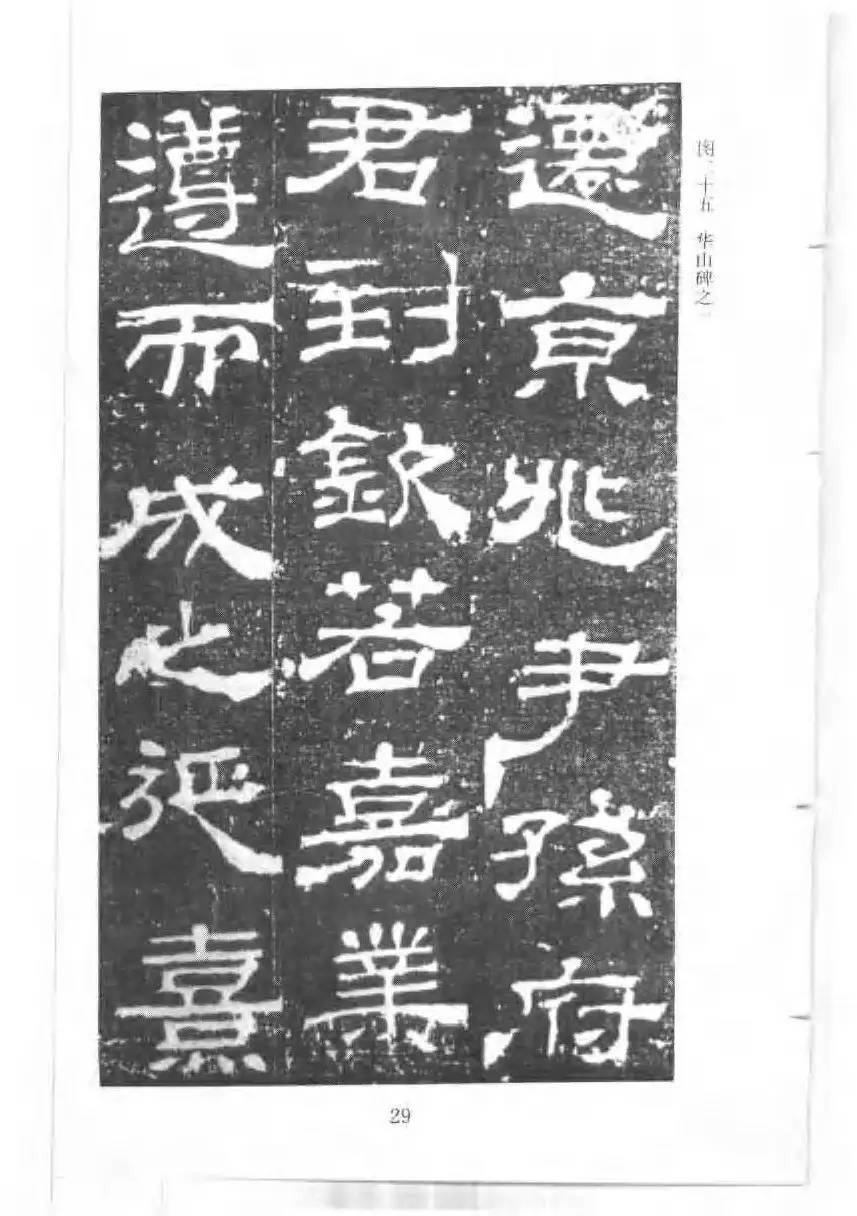 图二十五 华山碑之一
遷京兆尹孫府
君到欽若嘉業
遵而成之延熹
29